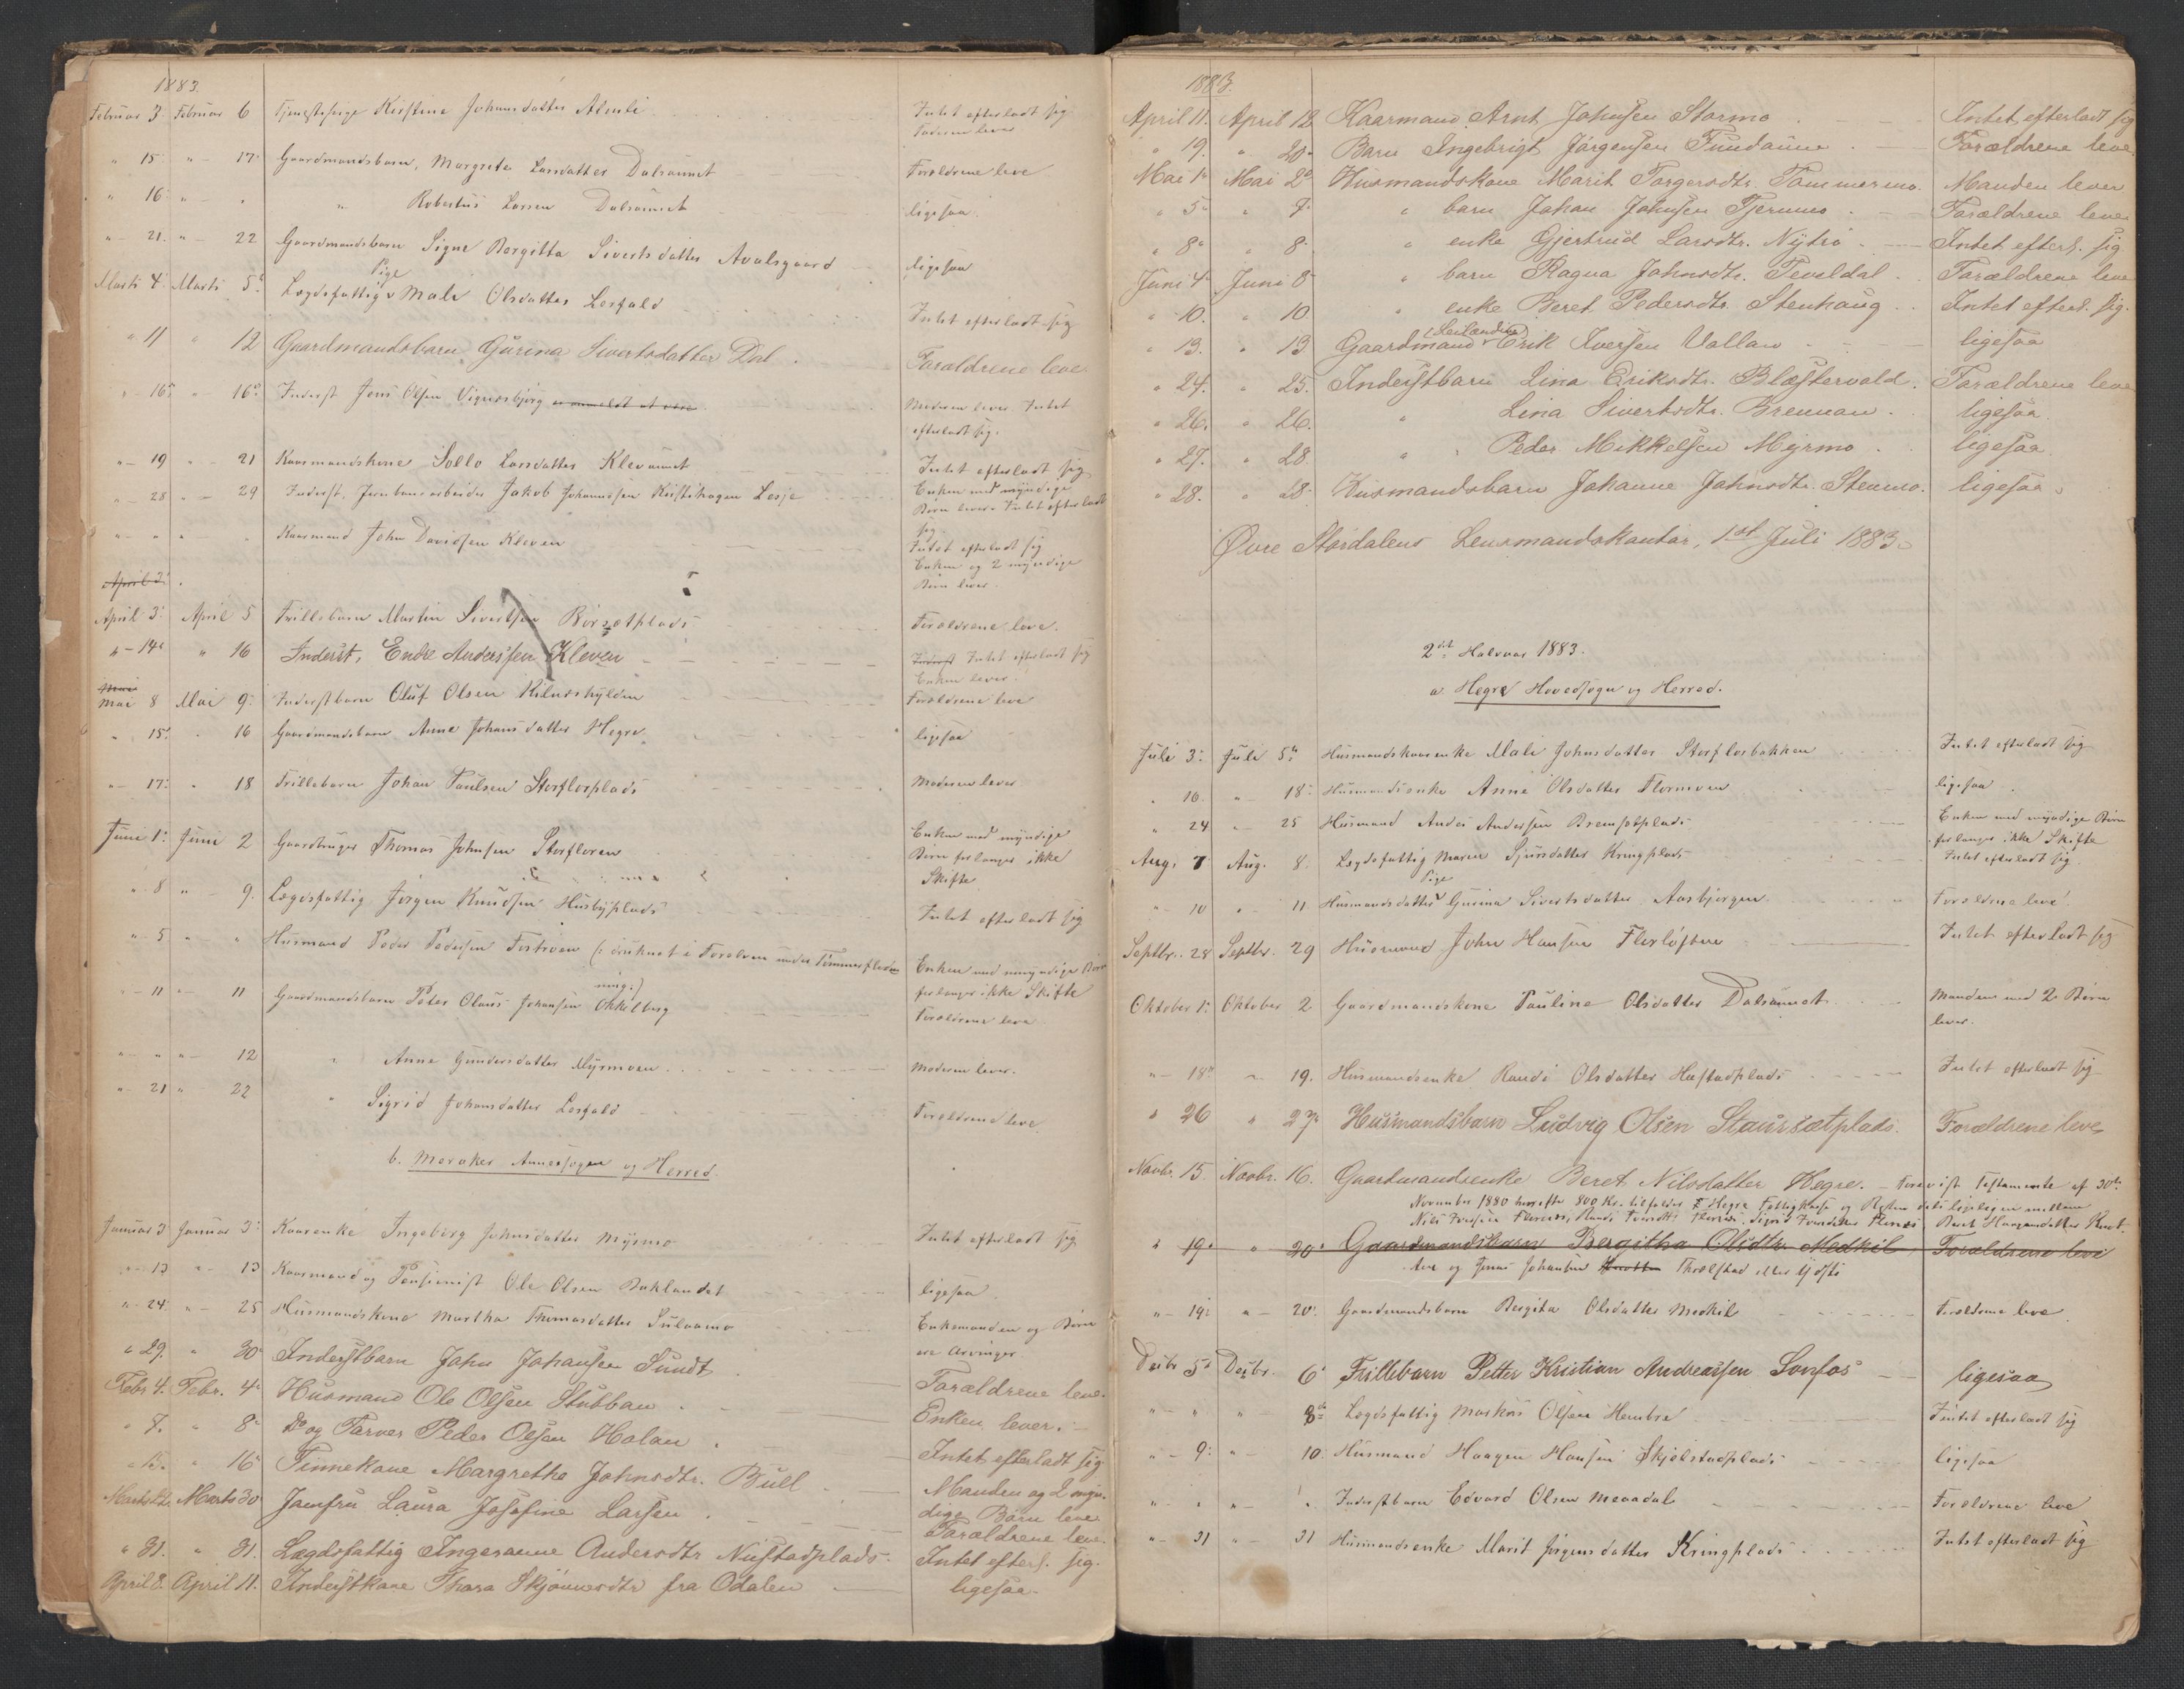 1883.
Februar 3 Februar 6 Tjenestepige Kirstine Johansdatter Almli Intet efterladt sig
Faderen lever
" 15 " 17 Gaardmandsbarn, Margrete Larsdatter Dalsaunet Forældrene leve
" 16 " " " Robertus Larsen Dalsaunet ligesaa
" 21. " 22 Gaardmandsbarn Signe Bergitta Sivertsdatter Avelsgaard ligesaa
Pige
Marti 4 Marti 5 Lægdsfattig Mali Olsdatter Lesfald Intet efterladt sig
" 11 " 12 Gaardmandsbarn Gurina Sivertsdatter Dal Forældrene leve
" 16 " 16 Inderst Jens Olsen Vigensbjerg er anmeldt at være Moderen lever. Intet
efterladt sig.
" 19 " 21 Kaarmandskone Lars­datter Klevaunet Intet efterladt sig
" 28 " 29 Inderst, Jernbanearbeider Jakob Johannssen Lesje Enken med myndige
Børn lever. Intet efterladt
sig
" " " " Kaarmand John Davidsen Kleven Intet efterladt sig
Enken og 2 myndige
Børn lever.
April 3
April 3 April 5 Frillebarn Martin Sivertsen Børsetplads Forældrene leve.
" 14 " 16 Inderst, Endre Anderssen Kleven Inderst Intet efterladt sig
Enken lever.
Mai 8 Mai 9 Inderstbarn Oluf Olsen Forældrene leve
" 15 " 16 Gaardmandsbarn Anne Johansdatter Hegre ligesaa
" 17 " 18 Frillebarn Johan Paulsen Storflorplads Moderen lever
Juni 1 Juni 2 Gaardbruger Thomas Johnsen Storfloren Enken med myndige
Børn forlanger ikke
Skifte
" 8 " 9. Lægdsfattig Jørgen Knudsen Husbyplads Intet efterladt sig
" 5 " " Husmand Peder Pedersen (: druknet i Foraelven under Tømmerfløt-
ning:) Enken med umyndige Børn
forlanger ikke Skifte
" 11 " 11 Gaardmandsbarn Peter Olaus Johansen Okkilberg Forældrene leve
" " " 12 " Anne Gundersdatter Myrmoen Moderen lever.
" 21 " 22 " Sigrid Johansdatter Lesfald Forældrene leve.
b. Meraker Annexsogn og Herred.
Januar 3 Januar 3 Kaarenke Ingeborg Johnsdatter Myrmo Intet efterladt sig
" 13 " 13 Kaarmand og Pensionist Ole Olsen Baklandet ligesaa
" 24 " 25 Husmandskone Martha Thomasdatter Sulaamo Enkemanden og Børn
ere Arvinger
" 29. " 30 Inderstbarn John Johansen Sundt Forældrene leve.
Febr 4. Febr. 4 Husmand Ole Olsen Stubban Enken lever.
" 7. " 8 Do og Farver Peder Olsen Holan Intet efterladt sig
" 15. " 16 Finnekone Margrethe Johnsdtr. Bull Manden og 2 myn-
dige Børn leve
Marts Marts 30 Jomfru Laura Josefine Larsen Forældrene leve
" 31. " 31. Lægdsfattig Ingeranne Andersdtr Nustadplads. Intet efterl. sig.
April 8. April 11. Inderstkone Thora Skjønnesdtr fra Odalen ligesaa.
1883.
April 11. April 12 Kaarmand Arnt Johnsen Stormo Intet efterladt sig
" 19. " 20 Barn Ingebrigt Jørgensen Fundaune Forældrene leve.
Mai 1 Mai 2 Husmandskone Marit Torgersdtr. Tømmermo. Manden lever
" 5 " 7 " barn Johan Johnsen Tjernmo Forældrene leve
" 8 " 8 " enke Gjertrud Larsdtr. Nytrø Intet efterl. sig
Juni 4 Juni 8 " barn Ragna Johnsdtr. Teveldal Forældrene leve
" 10. " 10 " enke Beret Pedersdtr. Stenhaug Intet efterl. sig.
(Leilænding)
" 13. " 13 Gaardmand Erik Iversen Vollan ligesaa
" 24. " 25. Inderstbarn Lina Eriksdtr. Blæstervold. Forældrene leve
" 26. " 26. " Lina Sivertsdtr. Brennan. ligesaa
" 27. " 28. " Peder Mikkelsen Myrmo ligesaa
" 28. " 28 Husmandsbarn Johanne Johnsdtr. Stenmo. ligesaa
Øvre Størdalens Lensmandskontor, 1st Juli 1883.
2det Halvaar 1883.
a. Hegre Hovedsogn og Herred.
Juli 3 Juli 5 Husmandskaarenke Mali Johnsdatter Storflorbakken Intet efterladt sig
" 16. " 18 Husmandsenke Anne Olsdatter Flormoen ligesaa
" 24 " 25 Husmand Anders Andersen Bremsetplads Enken med myndige Børn
forlanger ikke Skifte
Aug. 7 Aug. 8 Lægdsfattig Maren Sjursdatter Kringplads Intet efterladt sig
Pige
" 10 " 11 Husmandsdatter Gurina Sivertsdatter Aasbjørgen Forældrene leve.
Septbr. 28 Septbr. 29 Husmand John Hansen Florløften Intet efterladt sig
Oktober 1 Oktober 2 Gaardmandskone Pauline Olsdatter Dalsaunet Manden med 2 Børn
lever.
" 18 " 19. Husmandsenke Randi Olsdatter Hastadplads Intet efterladt sig
" 26 " 27 Husmandsbarn Ludvig Olsen Staursætplads. Forældrene leve
Novbr. 15. Novbr. 16. Gaardmandsenke Beret Nilsdatter Hegre. – Forevist Testamente af 30te
November 1880 hvorefter 800 Kr. tilfalder Hegre Fattigkasse og Resten deles ligelegen mellem
Nils Iversen Florenes, Randi Iversdtr Florenes, Sigrid Iversdatter Florenes Beret Haagensdatter
" 19 " 20 Gaardmandsbarn Bergitha Olsdtr. Medkil Forældrene leve
og Jonas Johansen Skrælstad eller Ydsti
" 19 " 20 Gaardmandsbarn Bergita Olsdatter Medkil Forældrene leve
Decbr 5 Decbr. 6 Frillebarn Petter Kristian Andreassen Sonfos ligesaa
" " " 8 Lægdsfattig Markus Olsen Hembre Intet efterladt sig
" 9 " 10 Husmand Haagen Hansen Skjelstadplads ligesaa
" " " " Inderstbarn Edvard Olsen Meaadal Forældrene leve
" 31 " 31 Husmandsenke Marit Jørgensdatter Kringplads Intet efterladt sig